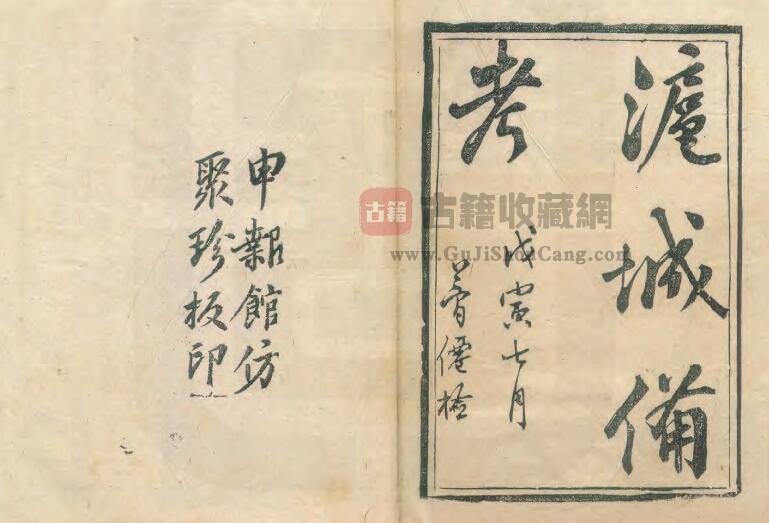 滬城備
考
戊寅七月
僊檢
申報館仿
聚珍板印
古籍
古籍收藏網
www.GuJiShouCang.com